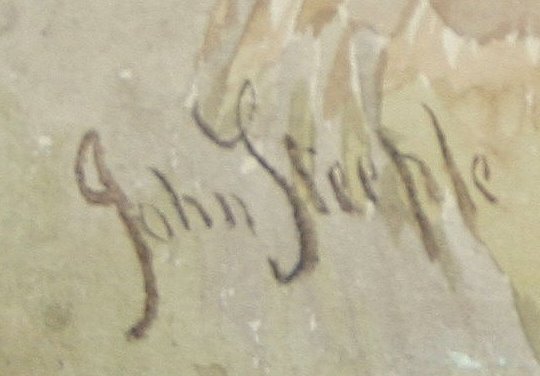 John Steeple